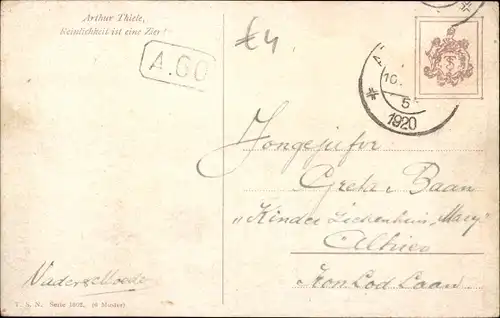 Arthur Thiele,
Reinlichkeit ist eine Zier!
A.60
£4
10.
5
1920
Jongejufr
Greta Baan
"Kinder Ziekenhuis "Mary"
Kon Lod Laan
Vader & Moeder
T. S. N. Serie 1602. (6 Muster)